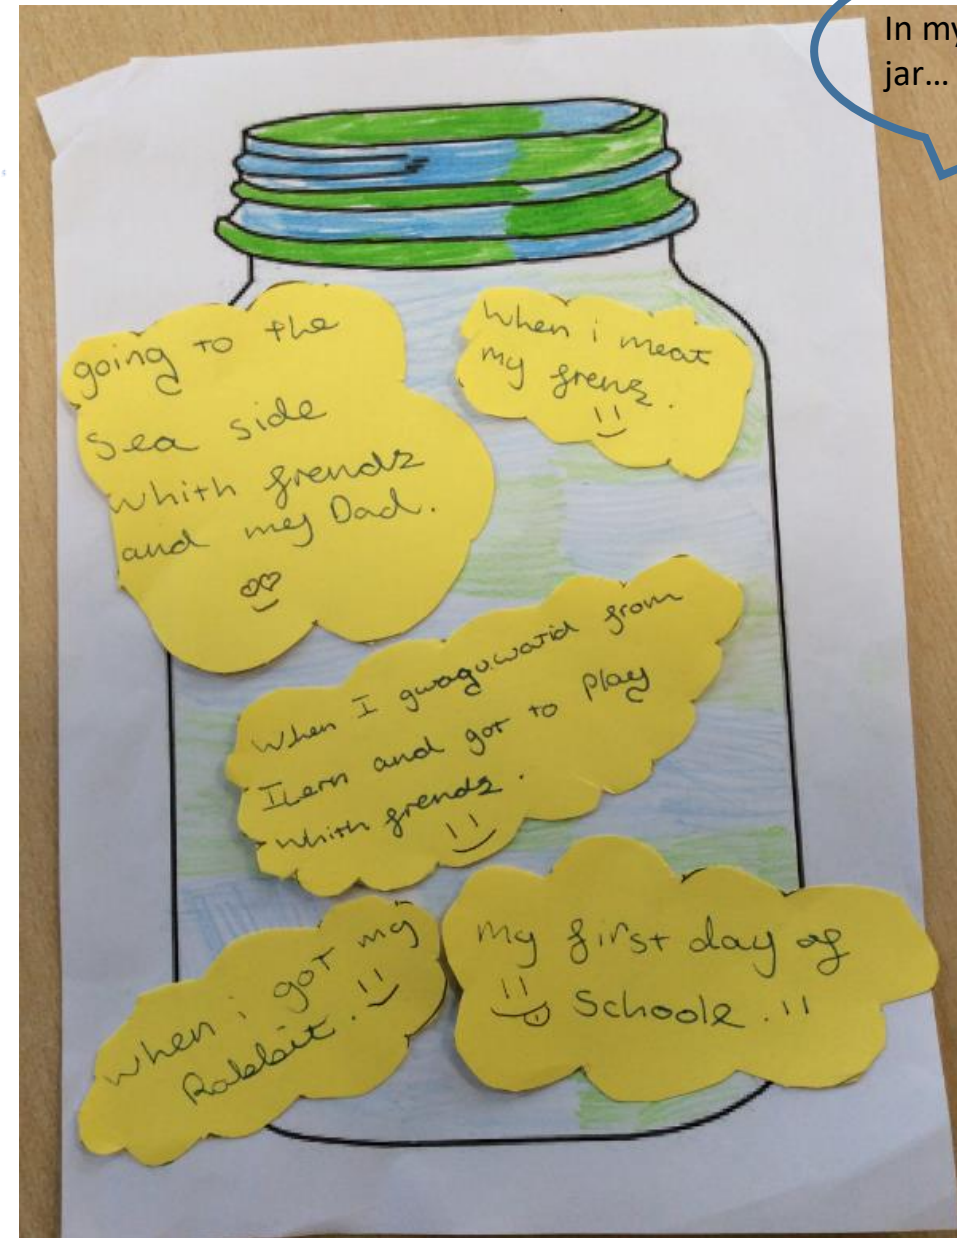 In my
jar...
going to the
Sea side
whith frendz
and my Dad.
when i meat
my frenz.
When I gwaguwatid from
ILern and got to Play
whith frendz.
when i got my
Rabbit.
my first day of
Schoole.